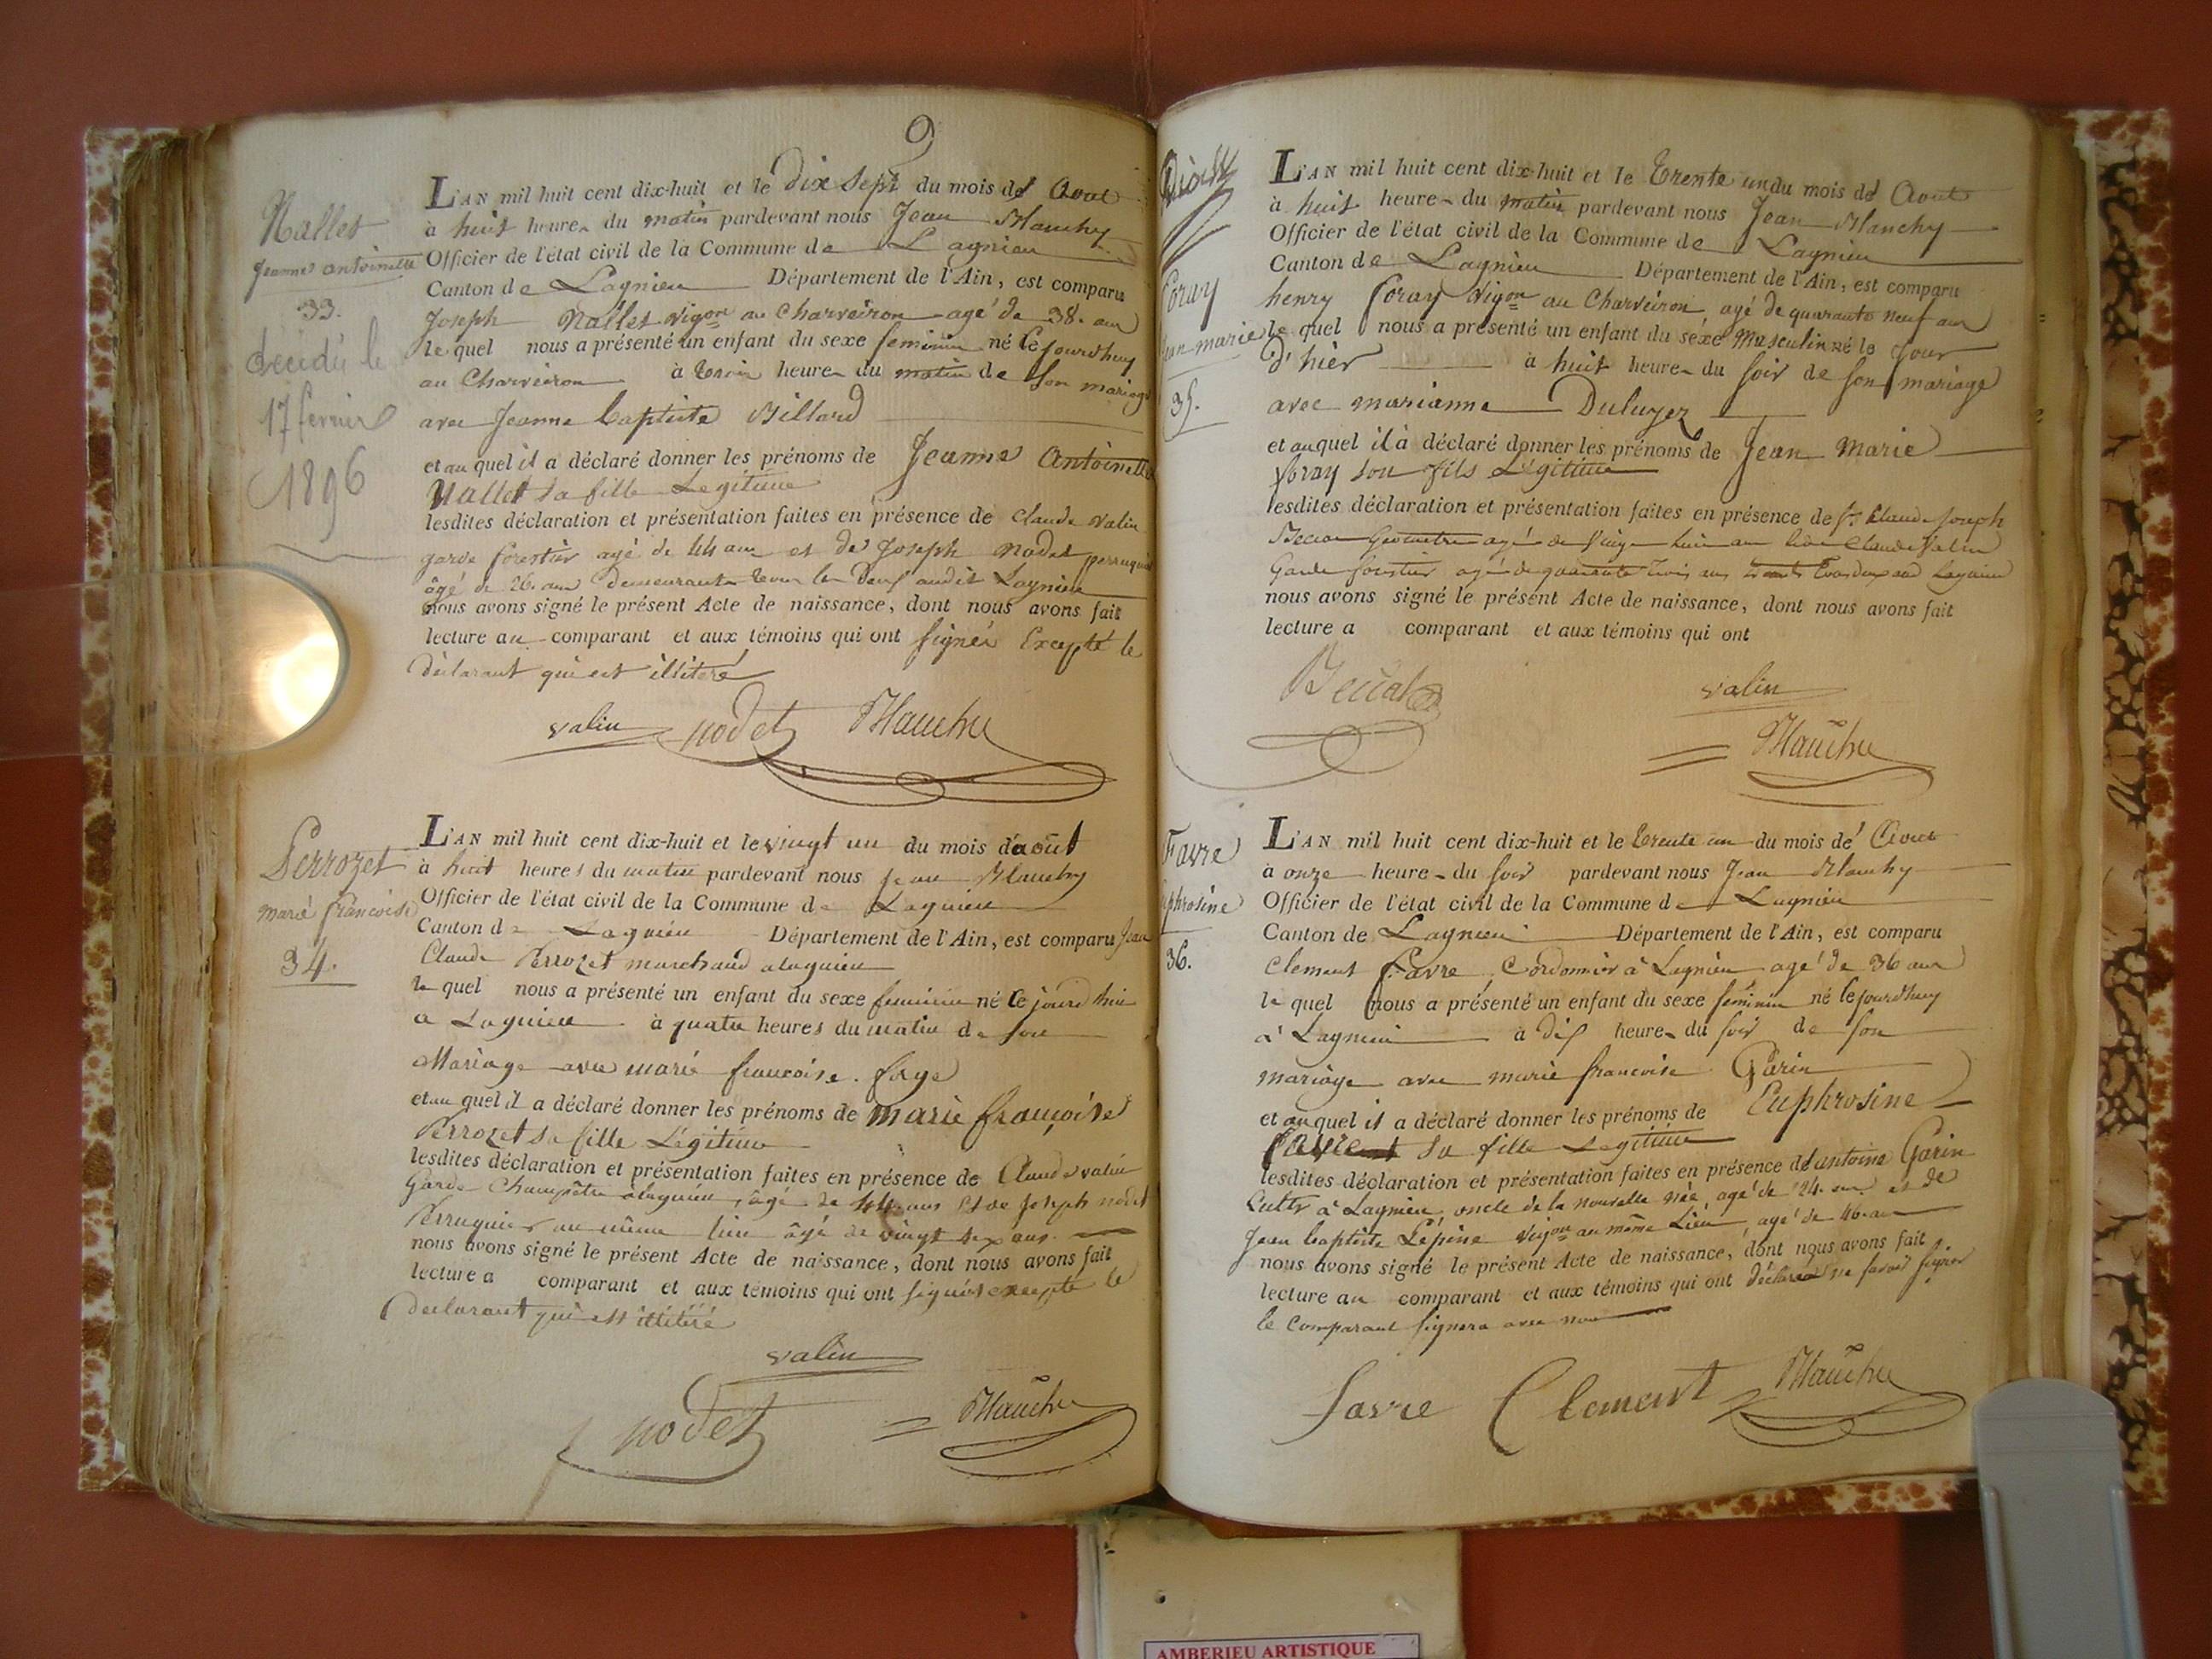 9
Nallet
Jeanne antoinette
33.
décédé le
17 fevrier
1896
L'AN mil huit cent dix-huit et le dix Sept du mois de Aout
à huit heures du matin pardevant nous Jean Blanchy
Officier de l'état civil de la Commune de Lagnieu
Canton de Lagnieu Département de l'Ain, est comparu
Joseph Nallet vigon au Charveiron agé de 38. ans
le quel nous a présenté un enfant du sexe feminin né cejourdhuy
au Charveiron à trois heures du matin de son mariage
avec Jeanne baptiste Billard
et au quel il a déclaré donner les prénoms de Jeanne Antoinette
Nallet sa fille Legitime
lesdites déclaration et présentation faites en présence de Claude valin
garde forestier agé de 44 ans et de Joseph Nodet perruquier
âgé de 26. ans demeurants tous les deux audit Lagnieu
nous avons signé le présent Acte de naissance, dont nous avons fait
lecture au comparant et aux témoins qui ont signés Excepté le
déclarant qui est illitéré
valin nodet Blanchy
Perrozet
marie francoise
34.
L'AN mil huit cent dix-huit et le vingt un du mois d'août
à huit heures du matin pardevant nous Jean Blanchy
Officier de l'état civil de la Commune de Lagnieu
Canton de Lagnieu Département de l'Ain, est comparu Jean
Claude Perrozet marchand a lagnieu
le quel nous a présenté un enfant du sexe feminin né ce jourd'hui
a Lagnieu à quatre heures du matin de son
Mariage avec marie francoise. faye
et au quel il a déclaré donner les prénoms de marie françoise
Perrozet sa fille Légitime
lesdites déclaration et présentation faites en présence de Claude valin
Garde Champêtre à lagnieu, âgé de 44 ans et de Joseph nodet
Perruquier au même lieu âgé de vingt six ans.
nous avons signé le présent Acte de naissance, dont nous avons fait
lecture a comparant et aux témoins qui ont signés excepté le
declarant qui est illitéré
valin
nodet Blanchy
foray
jean marie
35.
L'AN mil huit cent dix-huit et le trente un du mois de Aout
à huit heures du matin pardevant nous Jean Blanchy
Officier de l'état civil de la Commune de Lagnieu
Canton de Lagnieu Département de l'Ain, est comparu
henry foray Vigon au Charveiron agé de quarante neuf ans
le quel nous a présenté un enfant du sexe Masculin né le jour
d'hier à huit heures du soir de son mariage
avec marianne Duluyer
et au quel il à déclaré donner les prénoms de Jean Marie
foray son fils Légitime
lesdites déclaration et présentation faites en présence de Sr Claude Joseph
Géometre agé de Claude Valin
Garde forestier agé de quarante trois ans Lagnieu
nous avons signé le présent Acte de naissance, dont nous avons fait
lecture a comparant et aux témoins qui ont
valin
Blanchy
Favre
Euphrosine
36.
L'AN mil huit cent dix-huit et le trente un du mois de Aout
à onze heures du soir pardevant nous Jean Blanchy
Officier de l'état civil de la Commune de Lagnieu
Canton de Lagnieu Département de l'Ain, est comparu
Clement favre, Cordonnier à Lagnieu agé de 36 ans
le quel nous a présenté un enfant du sexe feminin né cejourdhuy
à Lagnieu à dix heures du soir de son
mariage avec marie francoise Garin
et au quel il a déclaré donner les prénoms de Euphrosine
favre sa fille Legitime
lesdites déclaration et présentation faites en présence de antoine Garin
Cultr à Lagnieu, oncle de la nouvelle née, agé de 24. ans et de
Jean baptiste Lépine Vigon au même Lieu, agé de 46. ans
nous avons signé le présent Acte de naissance, dont nous avons fait
lecture au comparant et aux témoins qui ont déclarés ne savoir signer
le Comparant signera avec nous
favre Clement Blanchy
AMBERIEU ARTISTIQUE